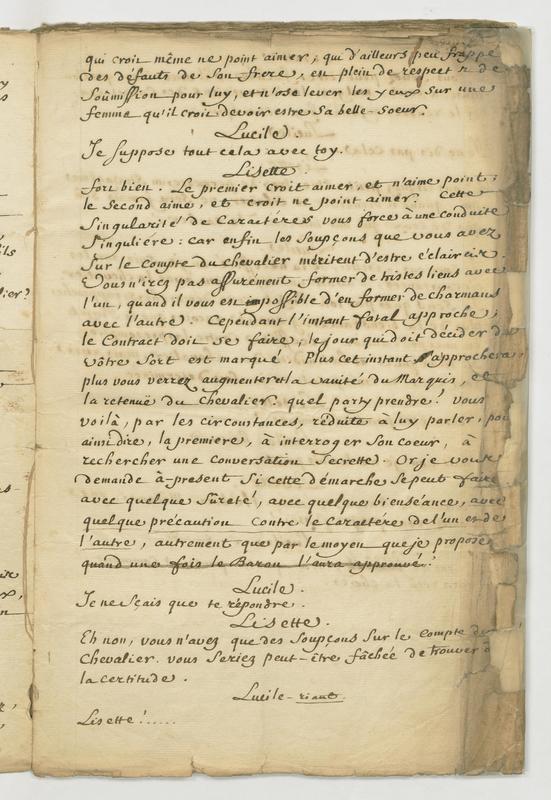 qui croit même ne point aimer, qui d'ailleurs peu frappé
des défauts de son frere, est plein de respect & de
soumission pour luy, et n'ose lever les yeux sur une
femme qu'il croit devoir estre sa belle-soeur.
Lucile.
Je suppose tout cela avec toy.
Lisette.
fort bien. Le premier croit aimer, et n'aime point;
le second aime, et croit ne point aimer. Cette
singularité de caractéres vous force à une conduite
singuliere: car enfin les soupçons que vous avez
sur le compte du chevalier méritent d'estre éclaircir.
Vous n'irez pas assurément former de tristes liens avec
l'un, quand il vous est impossible d'en former de charmans
avec l'autre. Cependant l'instant fatal approche;
le Contract doit se faire; le jour qui doit décider de
vôtre sort est marqué. Plus cet instant s'approchera
plus vous verrez augmenter la vanité du Marquis, et
la retenuë du Chevalier. quel party prendre? vous
voilà, par les circonstances, réduite à luy parler, pour
ainsi dire, la premiere, à interroger son coeur, à
rechercher une conversation secrette. Or je vous
demande à-present si cette démarche se peut faire
avec quelque sûreté, avec quelque bienséance, avec
quelque précaution contre le caractére de l'un et de
l'autre, autrement que par le moyen que je propose
quand une fois le Baron l'aura approuvé?
Lucile.
Je ne sçais que te répondre.
Lisette.
Eh non, vous n'avez que des soupçons sur le compte du
Chevalier. vous seriez peut-être fâchée de trouver
la certitude.
Lucile - riant.
Lisette!.....